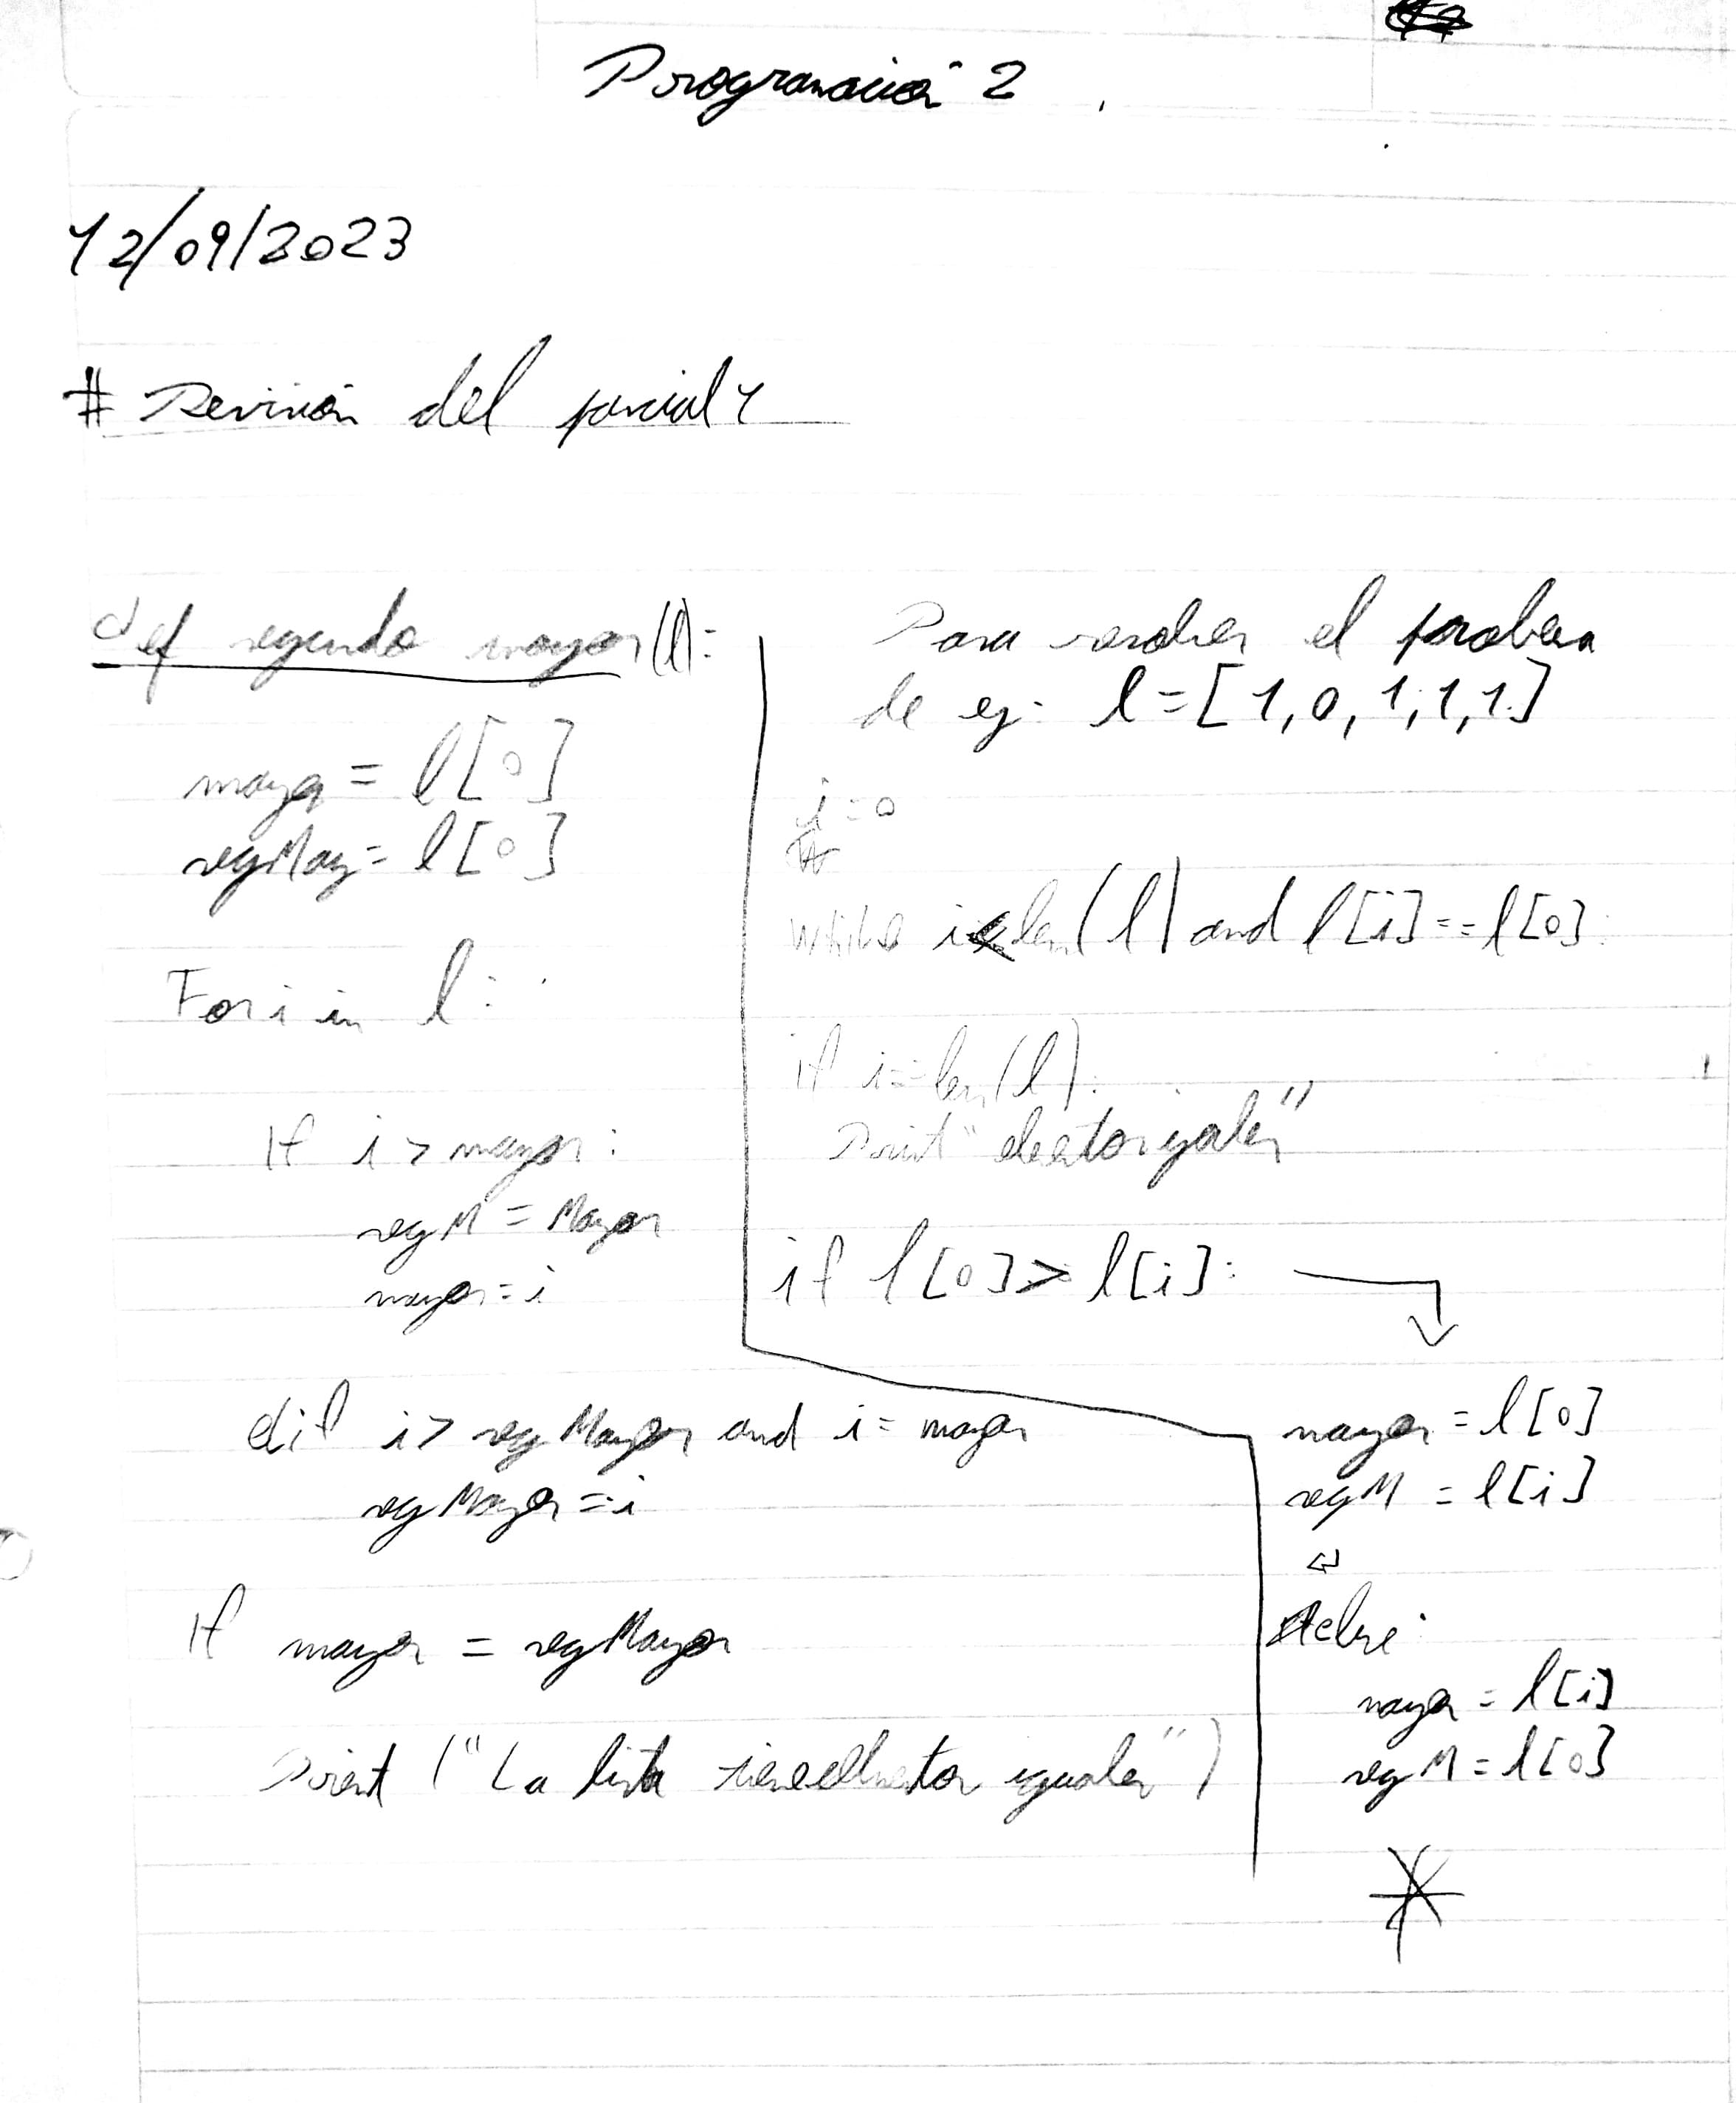 Programación 2
12/09/2023
# Revisión del parcial 1
def segundo mayor(l):
mayor = l[0]
segMay = l[0]
For i in l:
If i > mayor:
segM = Mayor
mayor = i
elif i > segMayor and i = mayor
segMayor = i
If mayor = segMayor
Print ("La lista tiene elementos iguales")
Para resolver el problema
de ej: l = [1, 0, 1, 1, 1]
i = 0
while i < len(l) and l[i] == l[0]:
if i == len(l):
Print "elementos iguales"
if l[0] > l[i]:
mayor = l[0]
segM = l[i]
else:
mayor = l[i]
segM = l[0]